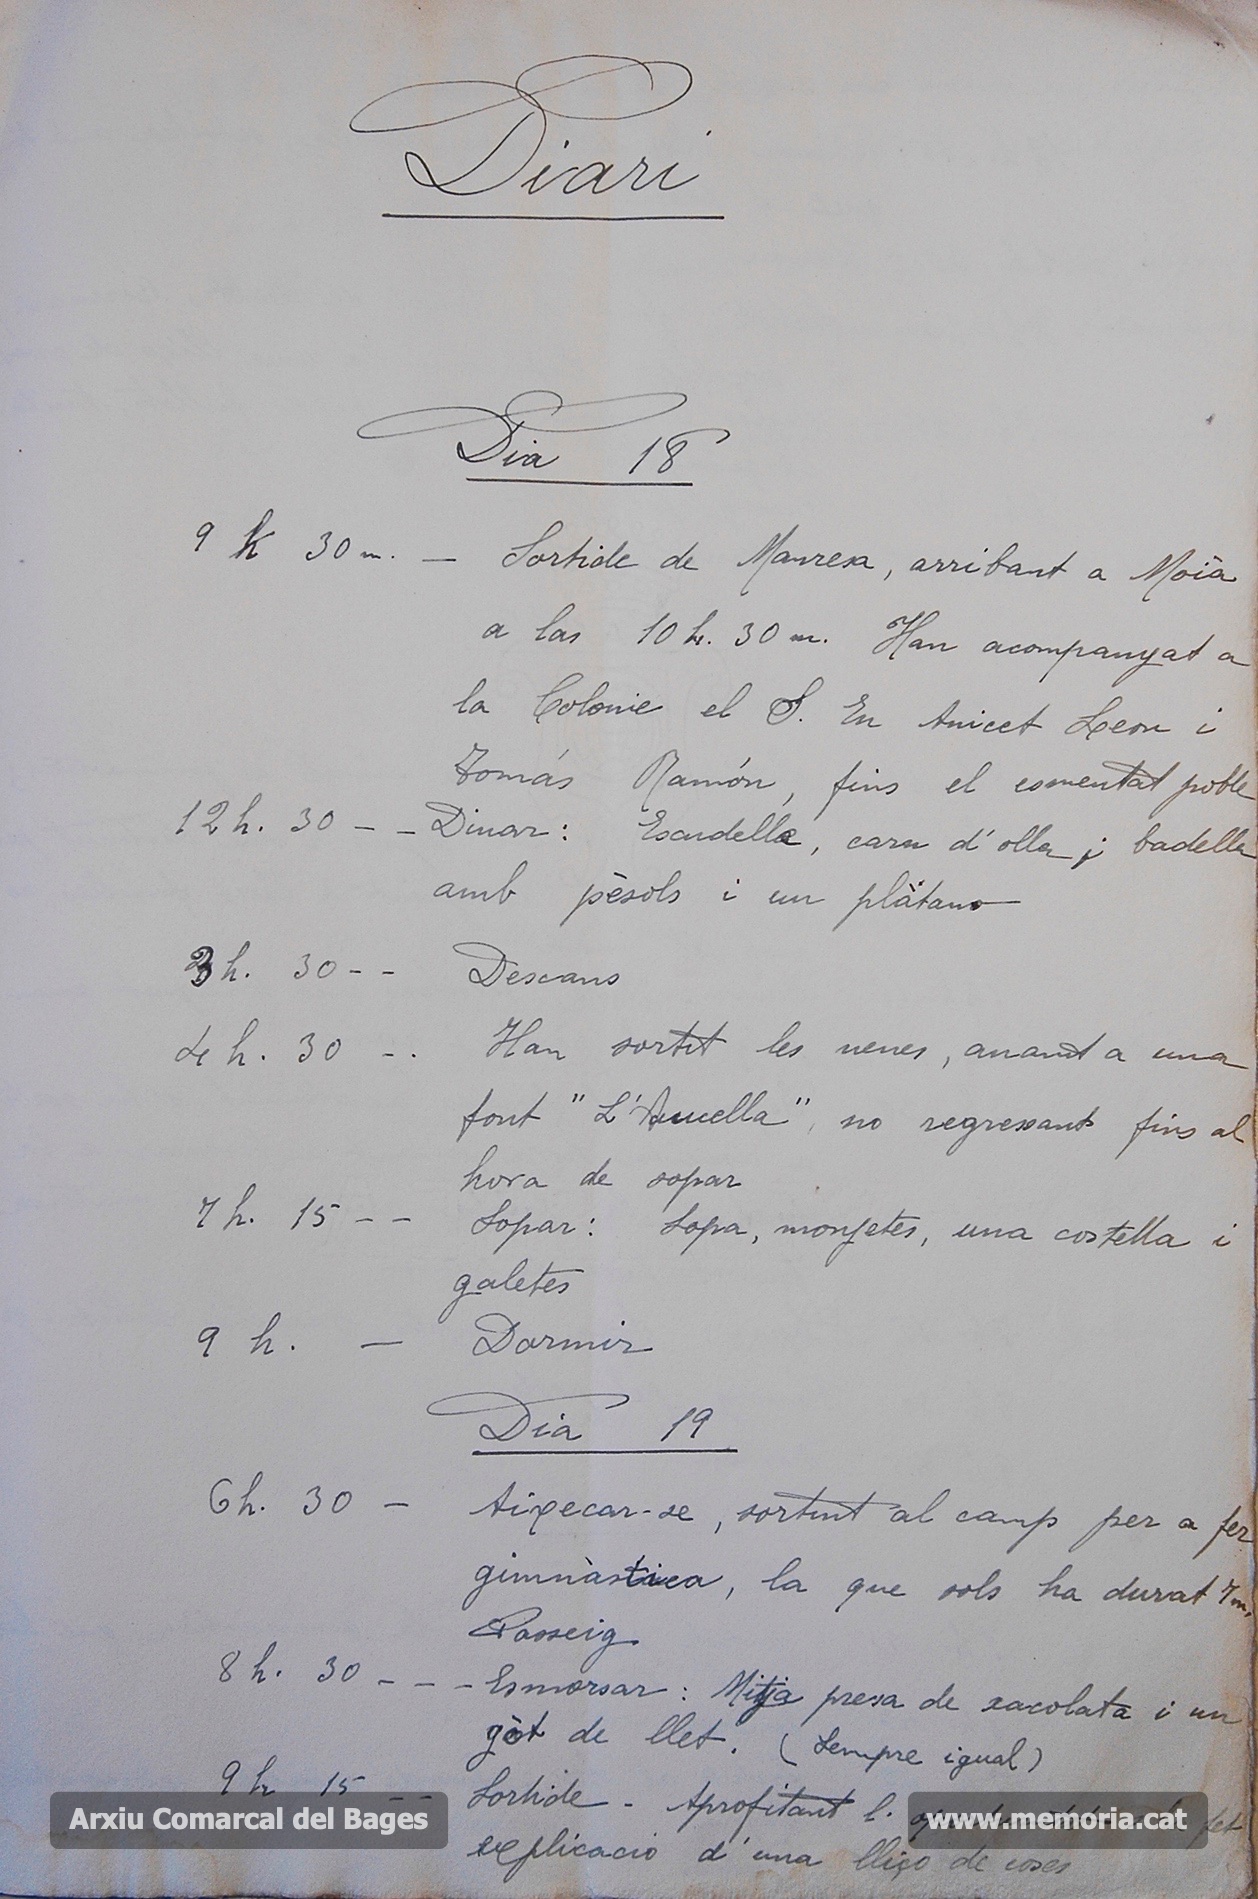 Diari
Dia 18
9 h 30 m. — Sortide de Manresa, arribant a Moià
a las 10 h. 30 m. Han acompanyat a
la Colonie el S. En Anicet Leon i
Tomás Ramón, fins el esmentat poble
12 h. 30 - - Dinar: Escudella, carn d'olla i badella
amb pèsols i un plàtano
3 h. 30 - - Descans
4 h. 30 - . Han sortit les nenes, anant a una
font " no regressant fins al
hora de sopar
7 h. 15 - - Sopar: Sopa, monjetes, una costella i
galetes
9 h. — Dormir
Dia 19
6 h. 30 — Aixecar-se, sortint al camp per a fer
gimnàstica, la que sols ha durat 7 m.
Passeig
8 h. 30 - - - Esmorsar: Mitja presa de xacolata i un
gòt de llet. (Sempre igual)
9 h 15 - - Sortide - Aprofitant l' fet
explicació d'una lliço de coses
Arxiu Comarcal del Bages
www.memoria.cat